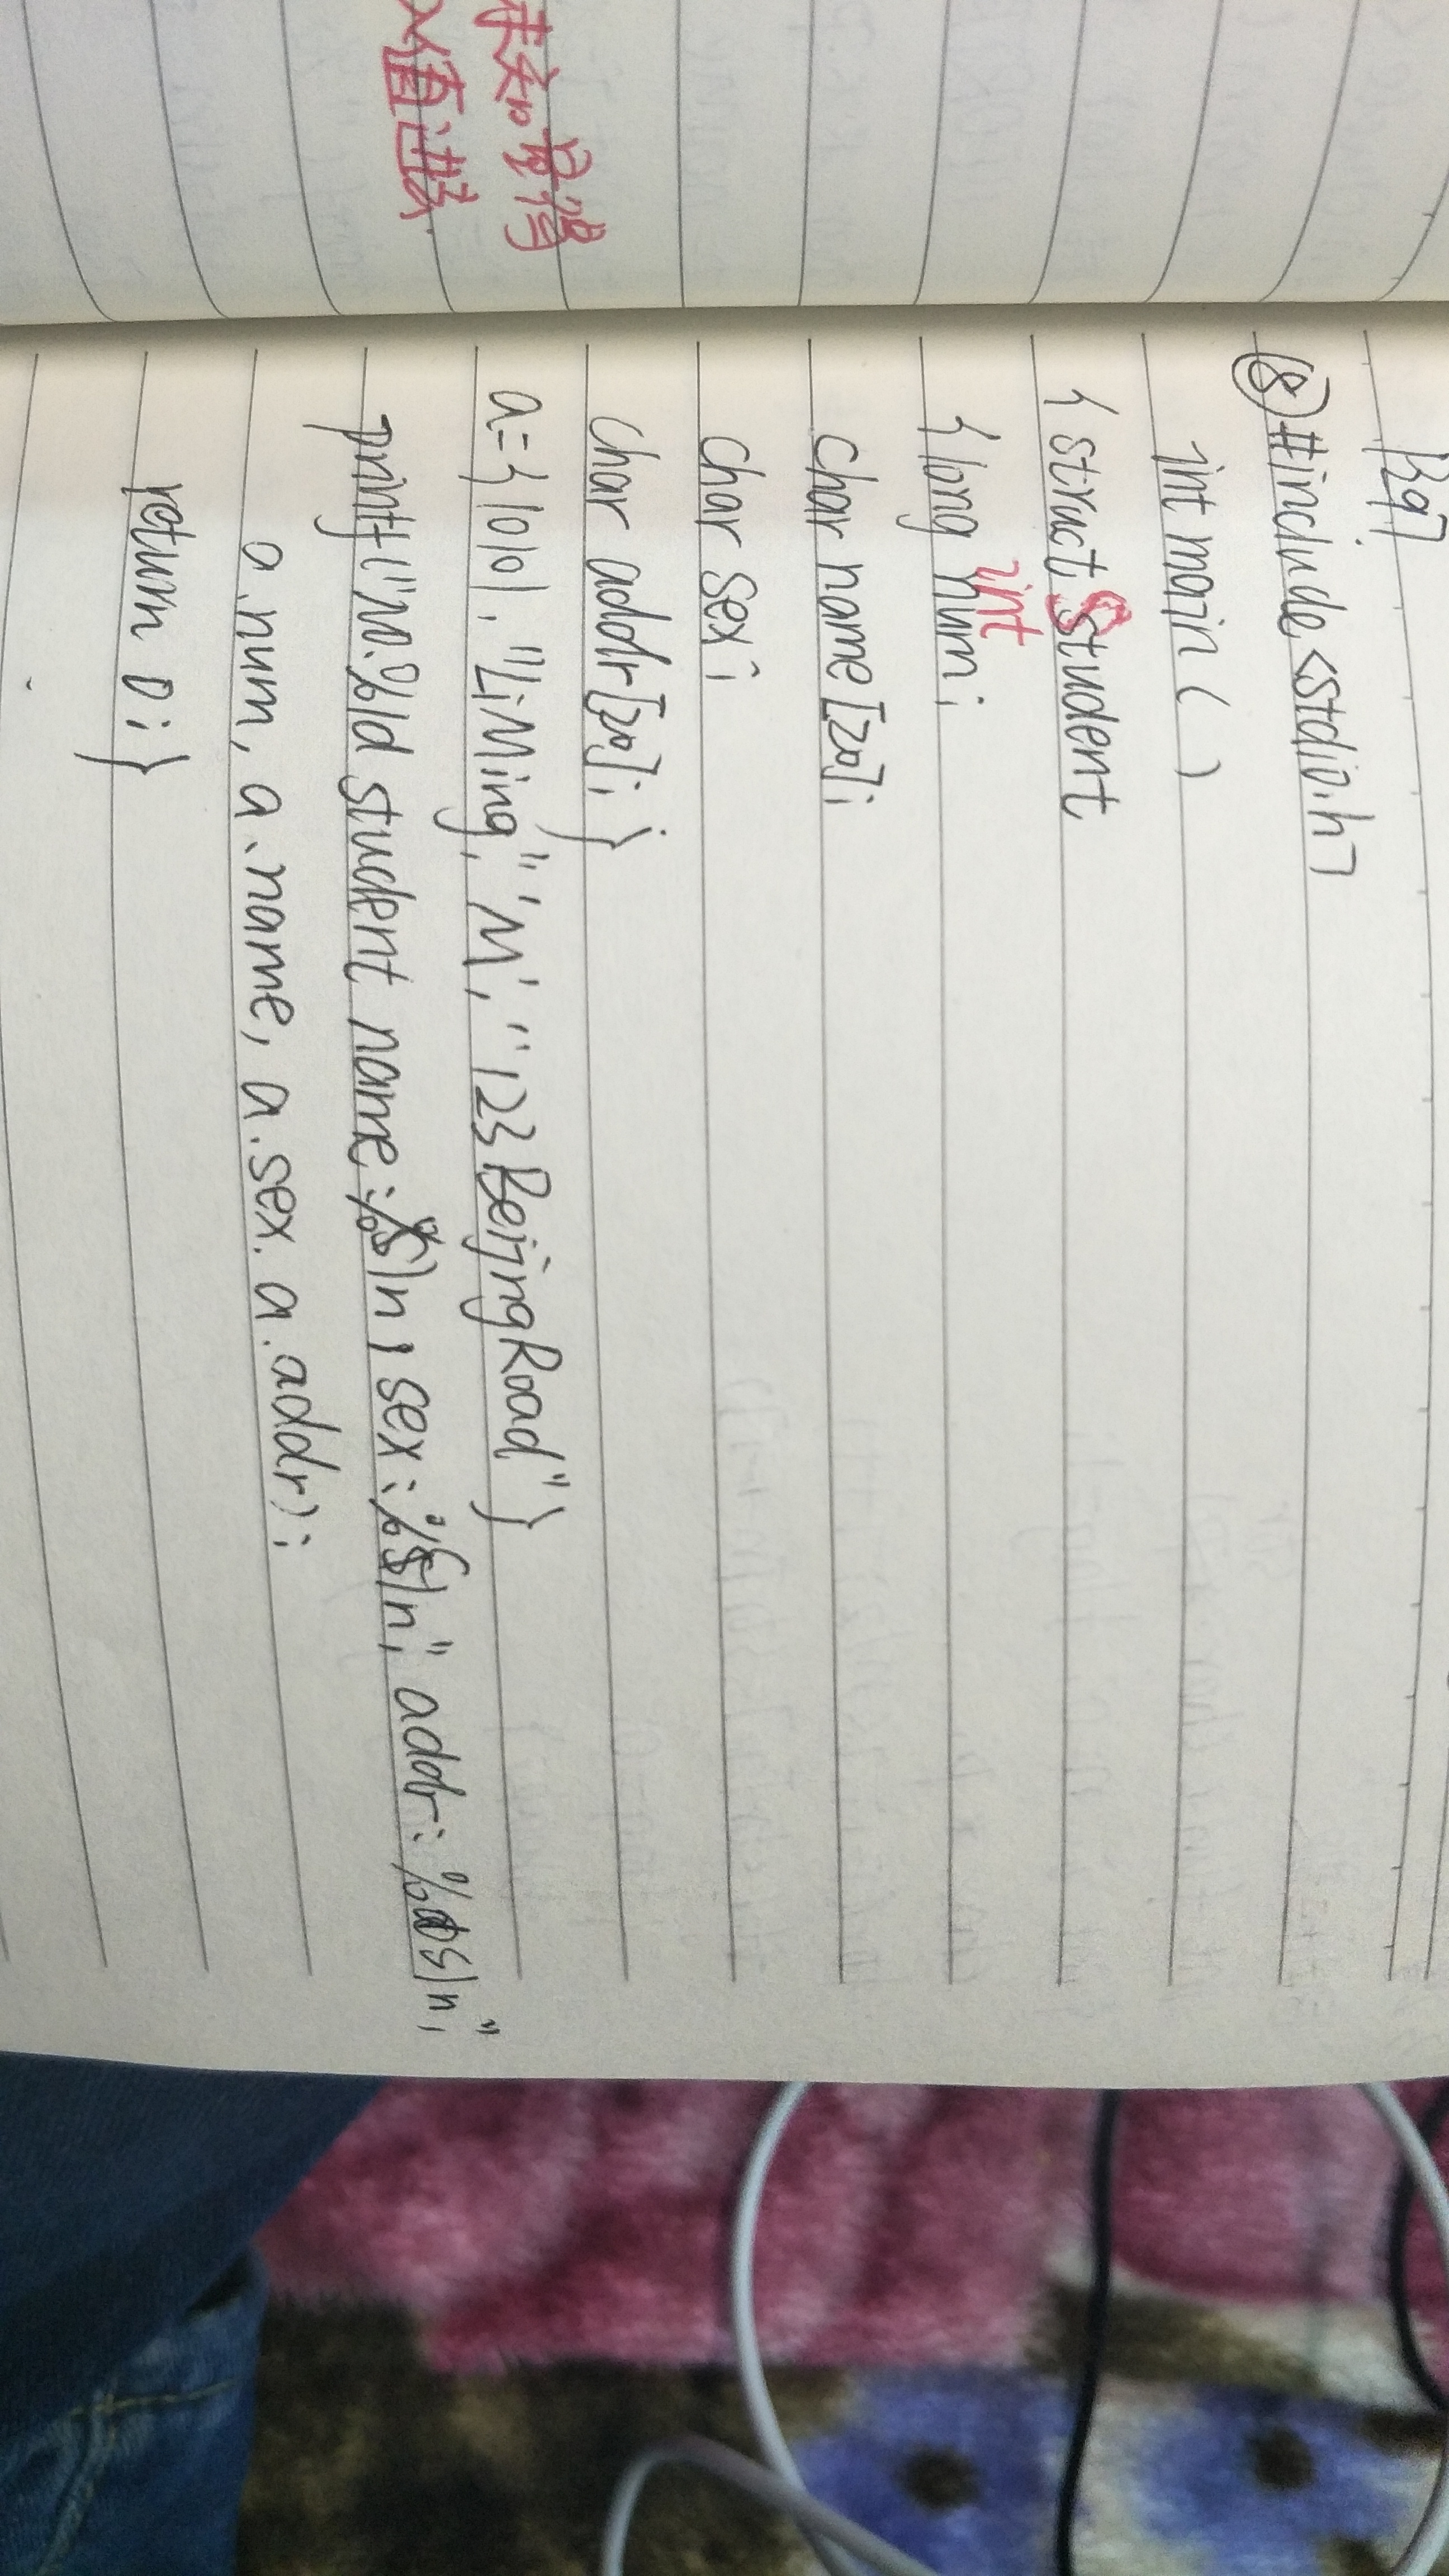 P297
⑧ #include<stdio.h>
int main ( )
{ struct Student
int
{ long num;
char name [20];
char sex;
char addr[20]; }
a={10101, "LiMing", 'M', "123 Beijing Road"}
printf("NO.%ld student name:%s\n, sex:%c\n", addr: %s\n",
a.num, a.name, a.sex. a.addr);
return 0;}
未知量得
入值进去.